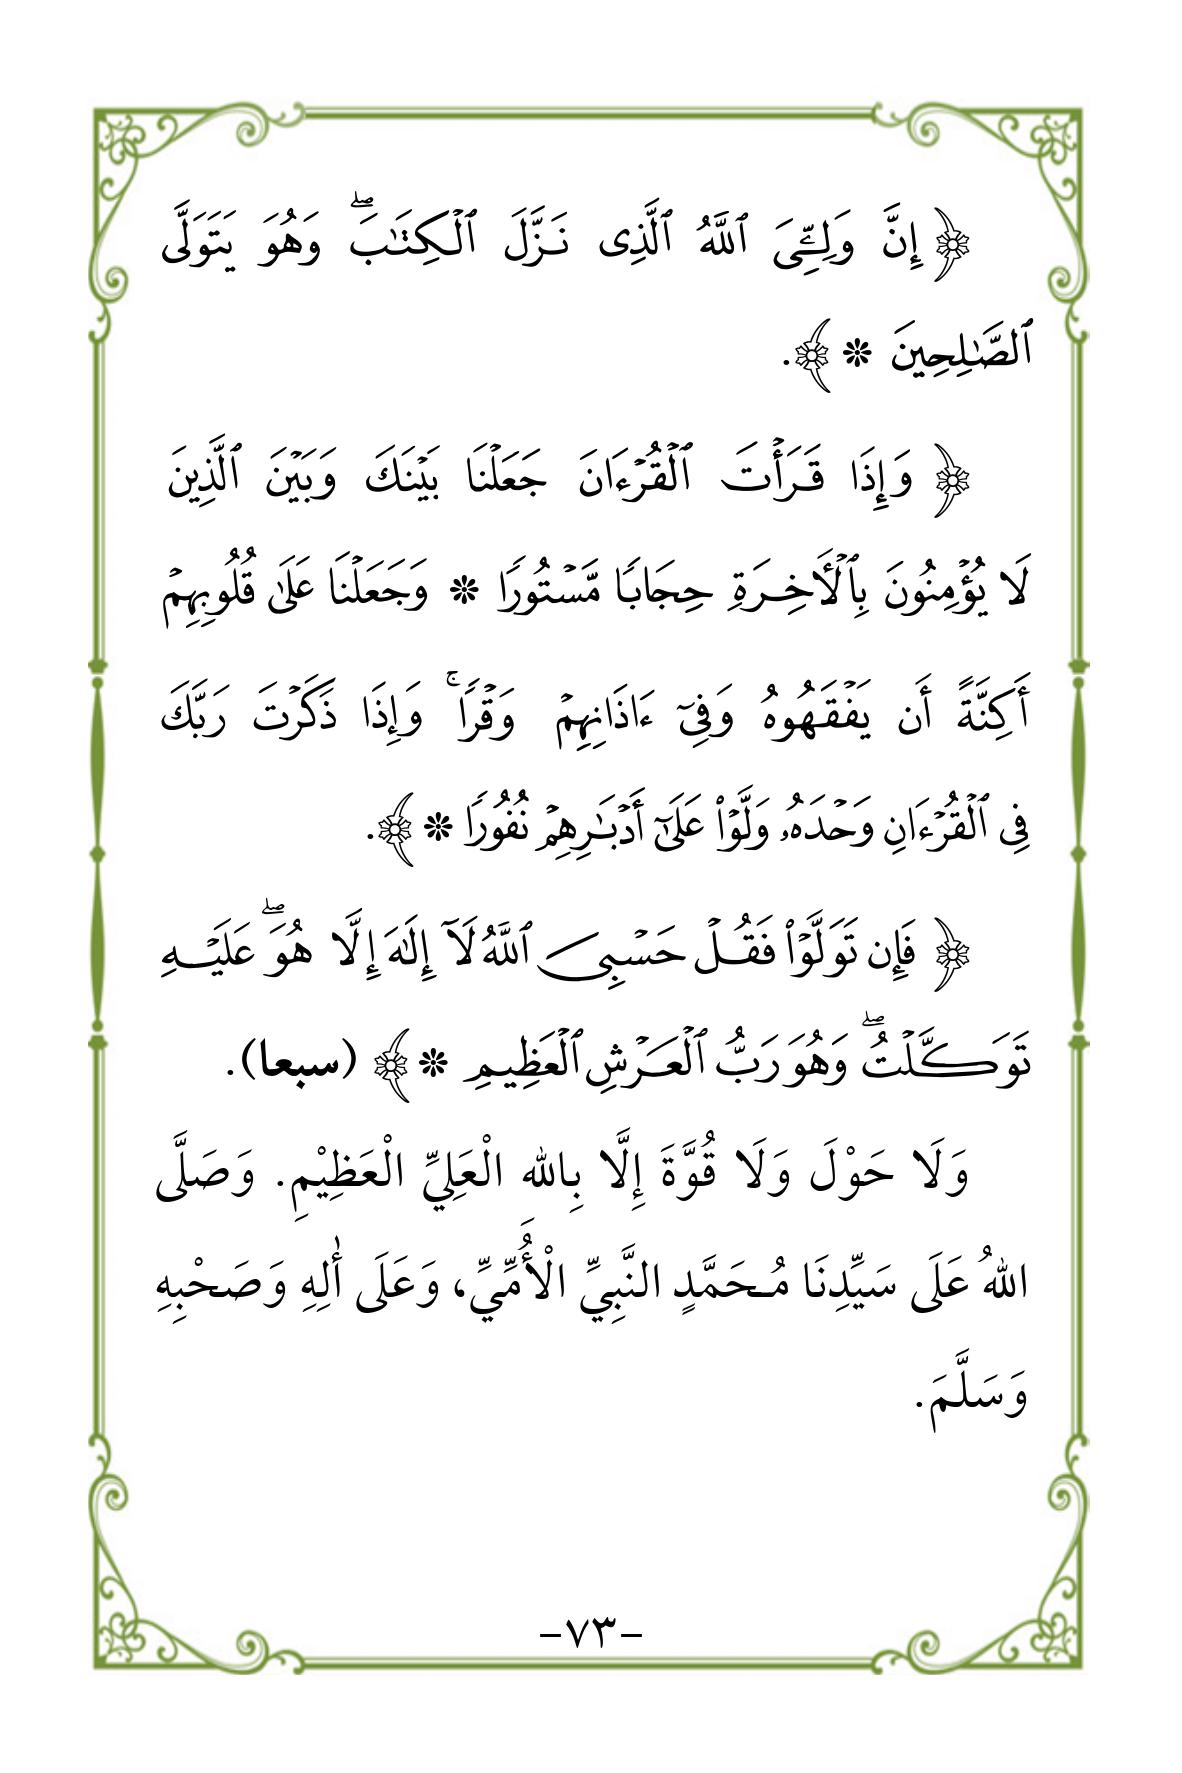 ﴿ إِنَّ وَلِـِّۧيَ ٱللَّهُ ٱلَّذِى نَزَّلَ ٱلْكِتَٰبَ ۖ وَهُوَ يَتَوَلَّى
ٱلصَّٰلِحِينَ * ﴾.
﴿ وَإِذَا قَرَأْتَ ٱلْقُرْءَانَ جَعَلْنَا بَيْنَكَ وَبَيْنَ ٱلَّذِينَ
لَا يُؤْمِنُونَ بِٱلْأَخِرَةِ حِجَابًا مَّسْتُورًا * وَجَعَلْنَا عَلَىٰ قُلُوبِهِمْ
أَكِنَّةً أَن يَفْقَهُوهُ وَفِىٓ ءَاذَانِهِمْ وَقْرًا ۚ وَإِذَا ذَكَرْتَ رَبَّكَ
فِى ٱلْقُرْءَانِ وَحْدَهُۥ وَلَّوْا۟ عَلَىٰٓ أَدْبَٰرِهِمْ نُفُورًا * ﴾.
﴿ فَإِن تَوَلَّوْا۟ فَقُلْ حَسْبِىَ ٱللَّهُ لَآ إِلَٰهَ إِلَّا هُوَ ۖ عَلَيْهِ
تَوَكَّلْتُ ۖ وَهُوَ رَبُّ ٱلْعَرْشِ ٱلْعَظِيمِ * ﴾ (سبعا).
وَلَا حَوْلَ وَلَا قُوَّةَ إِلَّا بِاللهِ الْعَلِيِّ الْعَظِيْمِ. وَصَلَّى
اللهُ عَلَى سَيِّدِنَا مُحَمَّدٍ النَّبِيِّ الْأُمِّيِّ، وَعَلَى أٰلِهِ وَصَحْبِهِ
وَسَلَّمَ.
–٧٣–